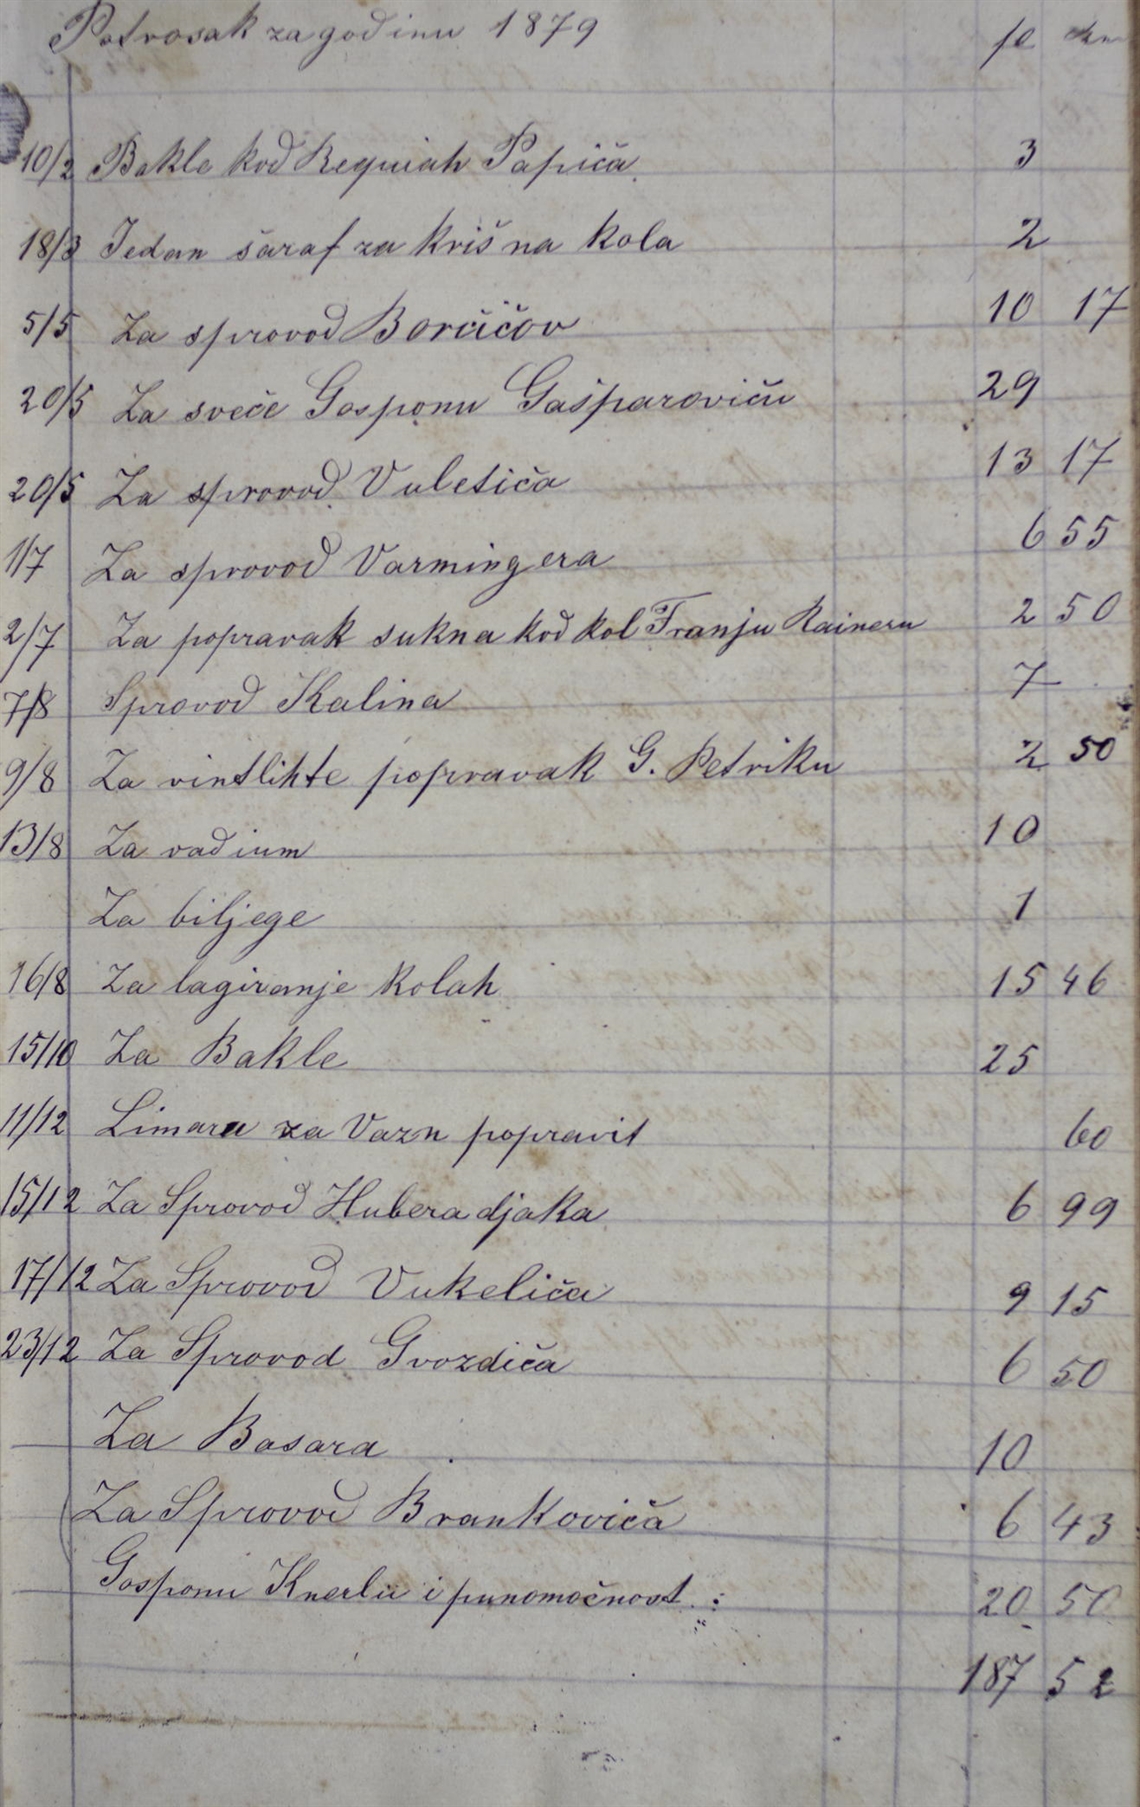 Potrosak za godinu 1879 fl
10/2 Bakle kod Requiah Papića 3
18/3 Jedan šaraf za kriš na kola 2
5/5 Za sprovod Borčićov 10 17
20/5 Za sveče Gosponu Gašparoviću 29
20/5 Za sprovod Vuletića 13 17
1/7 Za sprovod Varmingera 6 55
2/7 Za popravak sukna kod kol Franju Raineru 2 50
7/8 Sprovod Kalina 7
9/8 Za vintlihte popravak G. Petriku 2 50
13/8 Za vadium 10
Za biljege 1
16/8 Za lagiranje kolah 15 46
15/10 Za Bakle 25
11/12 Limaru za Vazn popravit 60
15/12 Za Sprovod Hubera djaka 6 99
17/12 Za Sprovod Vukelića 9 15
23/12 Za Sprovod Gvozdića 6 50
Za Basara 10
Za Sprovod Brankovića 6 43
Gosponu Knerlu i punomočnost : 20 50
187 52